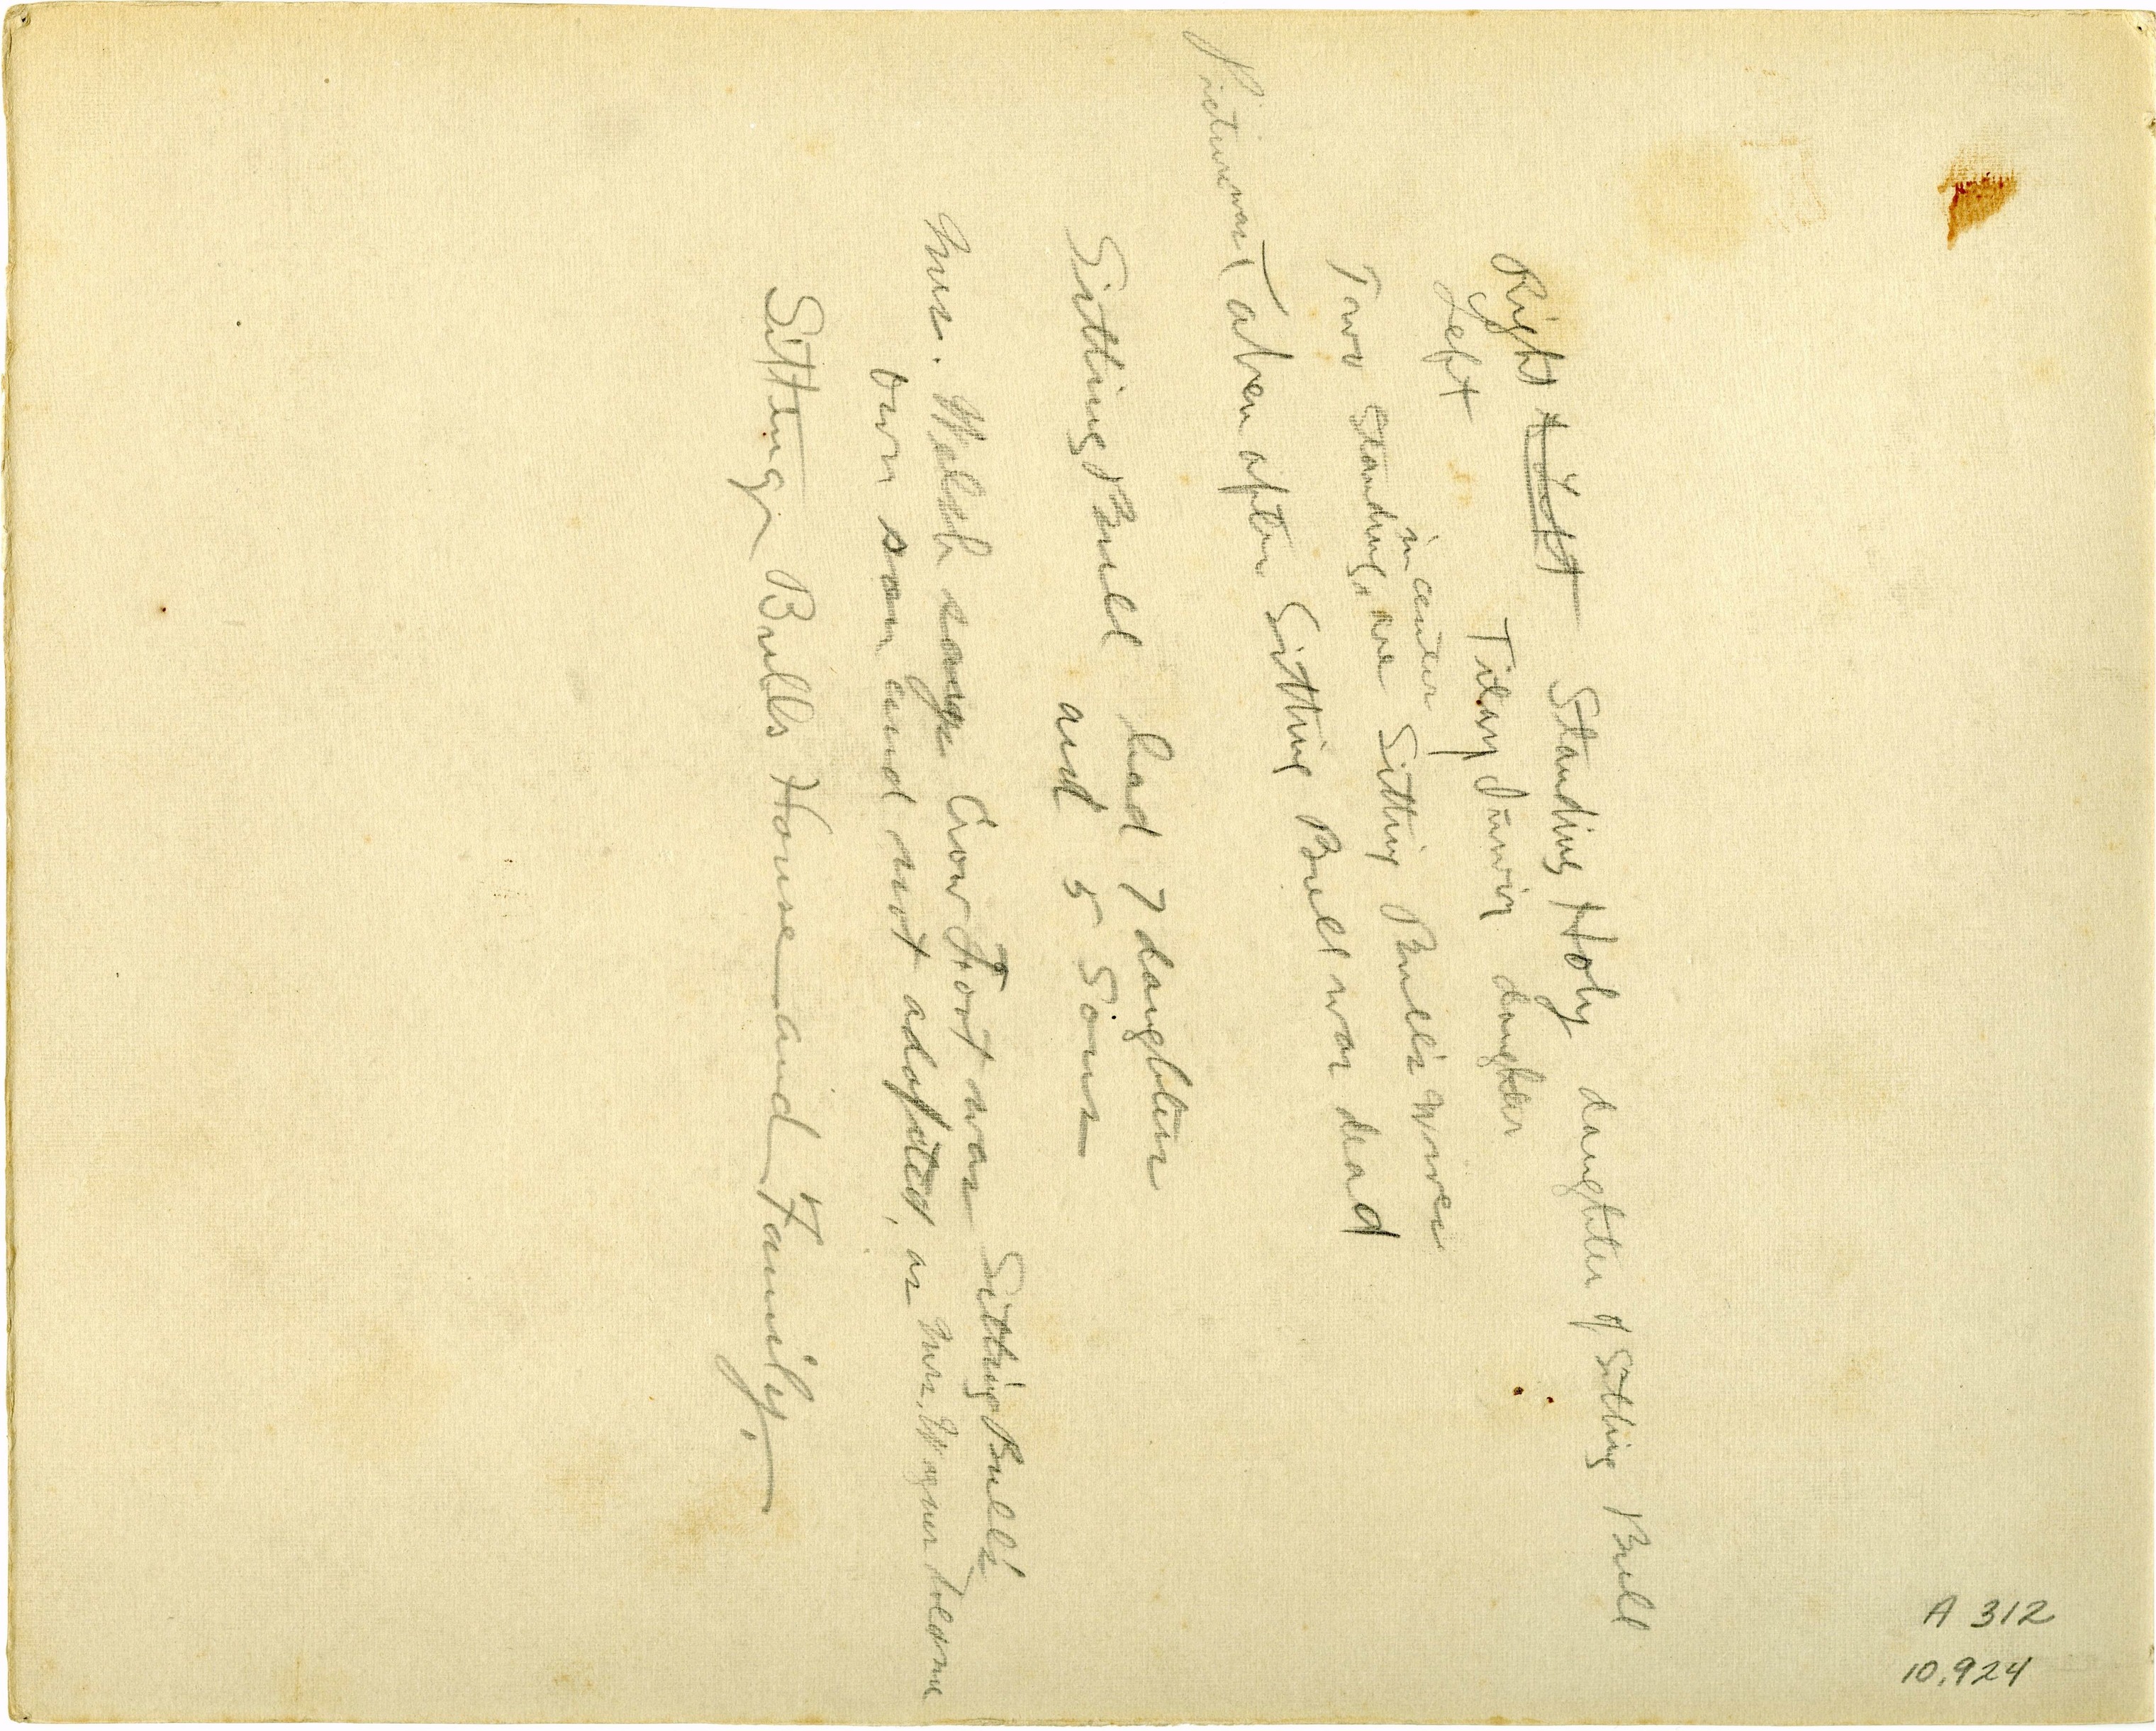 Right Standing Holy daughter of Sitting Bull
Left Tilary daughter
in center
Two standing, are Sitting Bull's wives
Picture was Taken after Sitting Bull was dead
Sitting Bull had 7 daughters
and 5 Sons
Mrs. Welsh says Crow Foot was Sitting Bull's
own son and not adopted, as Mrs.
Sitting Bulls House and Family.
A 312
10,924